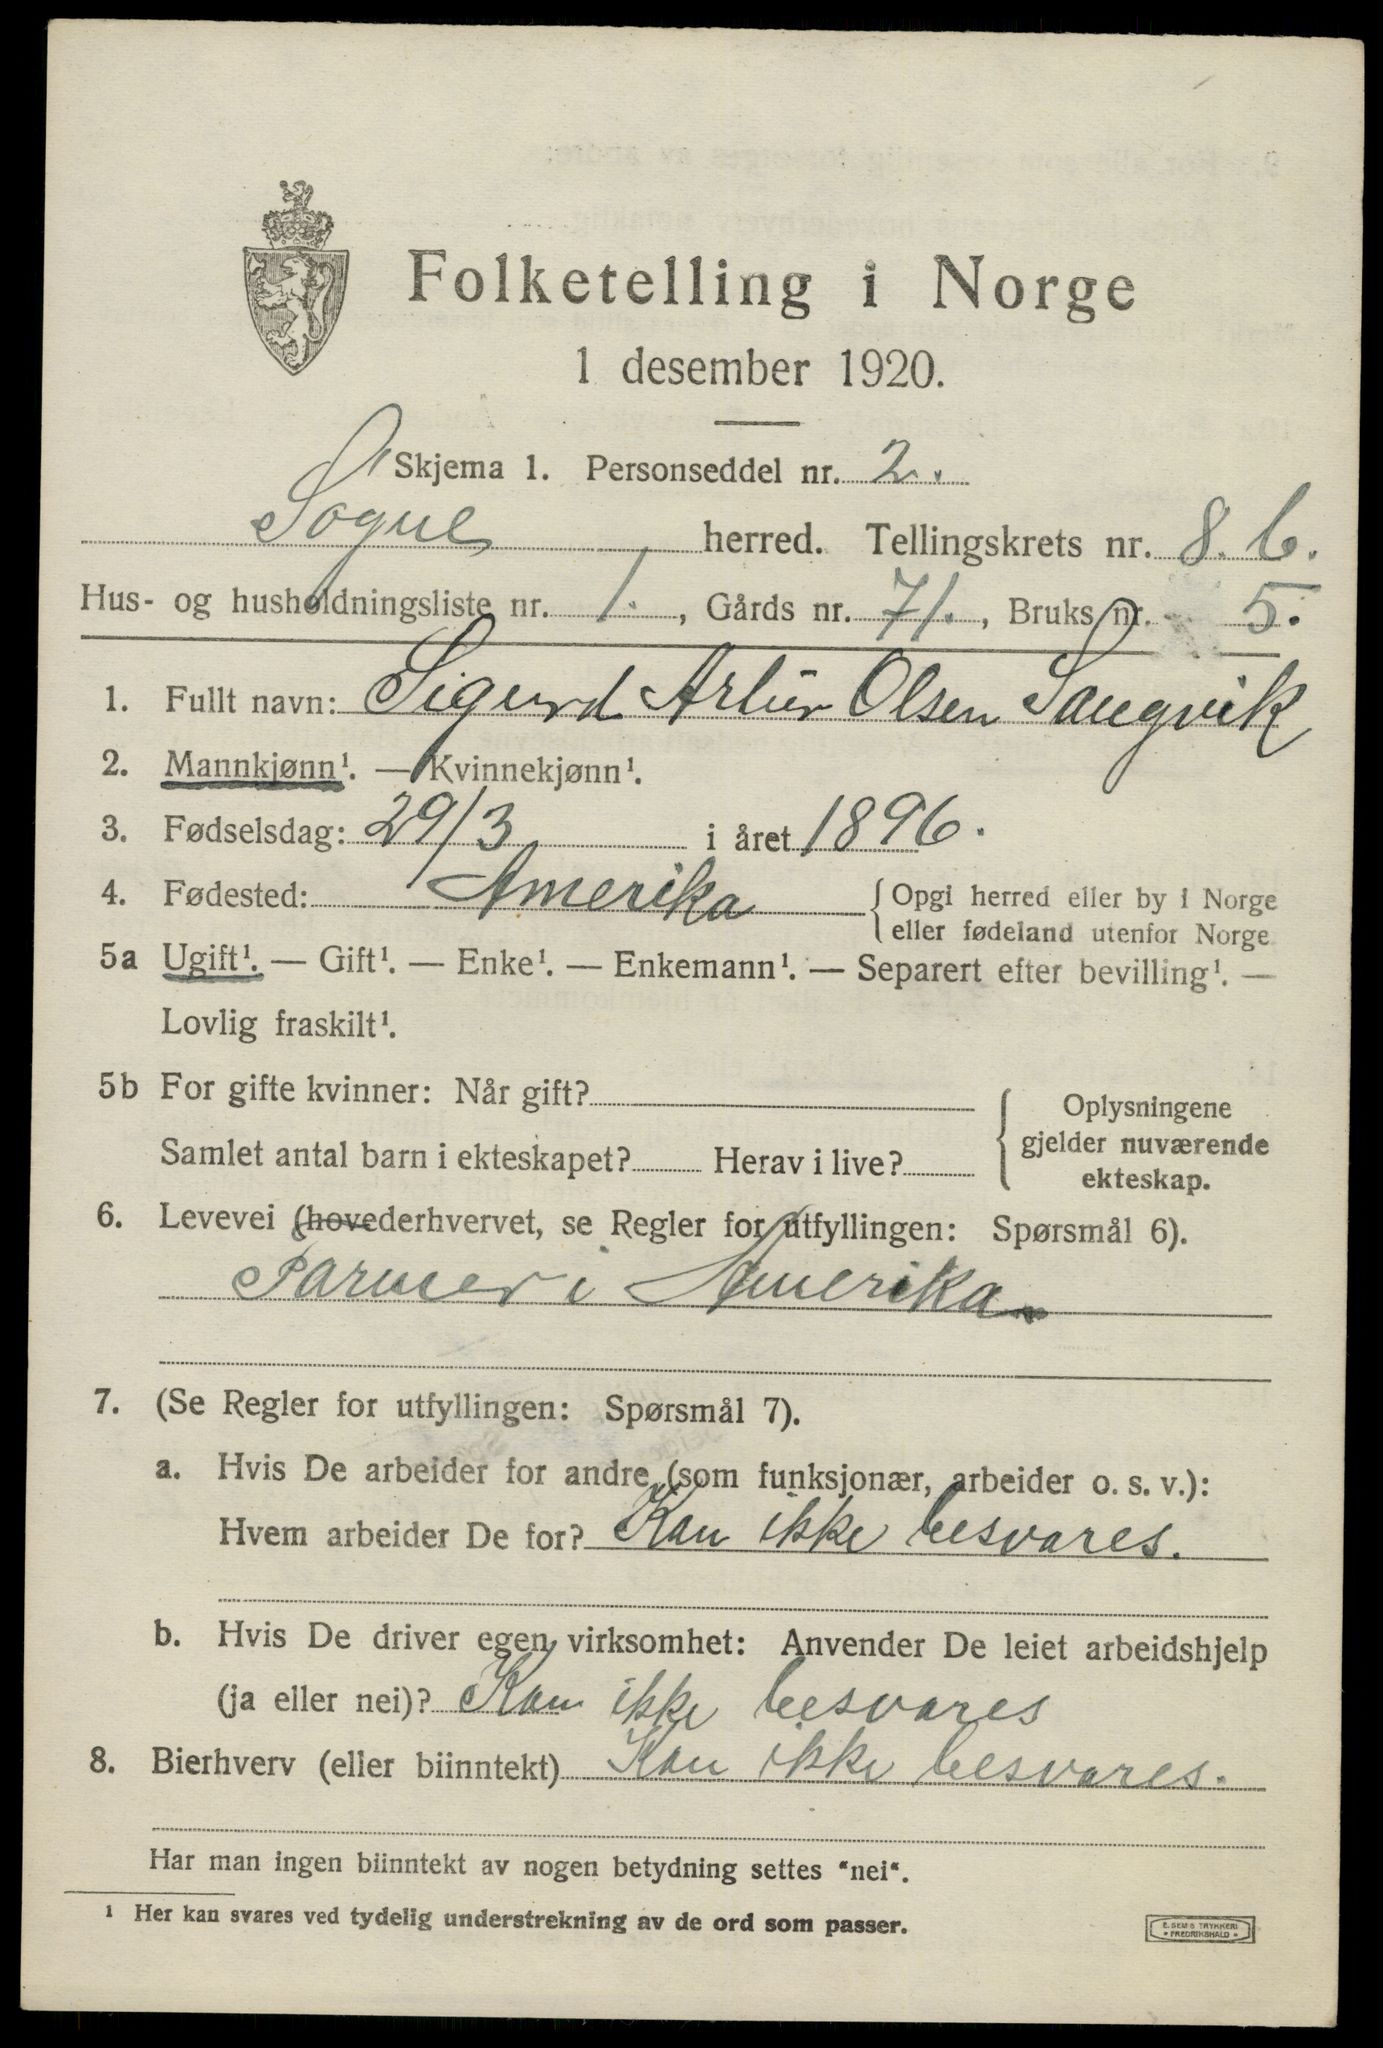 Folketelling i Norge
1 desember 1920.
Skjema 1. Personseddel nr. 2.
Søgne herred. Tellingskrets nr. 8. b.
Hus- og husholdningsliste nr. 1. , Gårds nr. 71. , Bruks nr. 5.
1. Fullt navn: Sigurd Artur Olsen Langvik
2. Mannkjønn¹. — Kvinnekjønn¹.
3. Fødselsdag: 29/3 i året 1896.
4. Fødested: Amerika { Opgi herred eller by i Norge
eller fødeland utenfor Norge
5a Ugift¹. — Gift¹. — Enke¹. — Enkemann¹. — Separert efter bevilling¹. —
Lovlig fraskilt¹.
5b For gifte kvinner: Når gift?
Samlet antal barn i ekteskapet? Herav i live?
{ Oplysningene
gjelder nuværende
ekteskap.
6. Levevei (hovederhvervet, se Regler for utfyllingen: Spørsmål 6).
Farmer i Amerika
7. (Se Regler for utfyllingen: Spørsmål 7).
a. Hvis De arbeider for andre (som funksjonær, arbeider o. s. v.):
Hvem arbeider De for? Kan ikke besvares.
b. Hvis De driver egen virksomhet: Anvender De leiet arbeidshjelp
(ja eller nei)? Kan ikke besvares
8. Bierhverv (eller biinntekt) Kan ikke besvares.
Har man ingen biinntekt av nogen betydning settes "nei".
1 Her kan svares ved tydelig understrekning av de ord som passer.
E. SEM'S TRYKKERI
* FREDRIKSHALD *